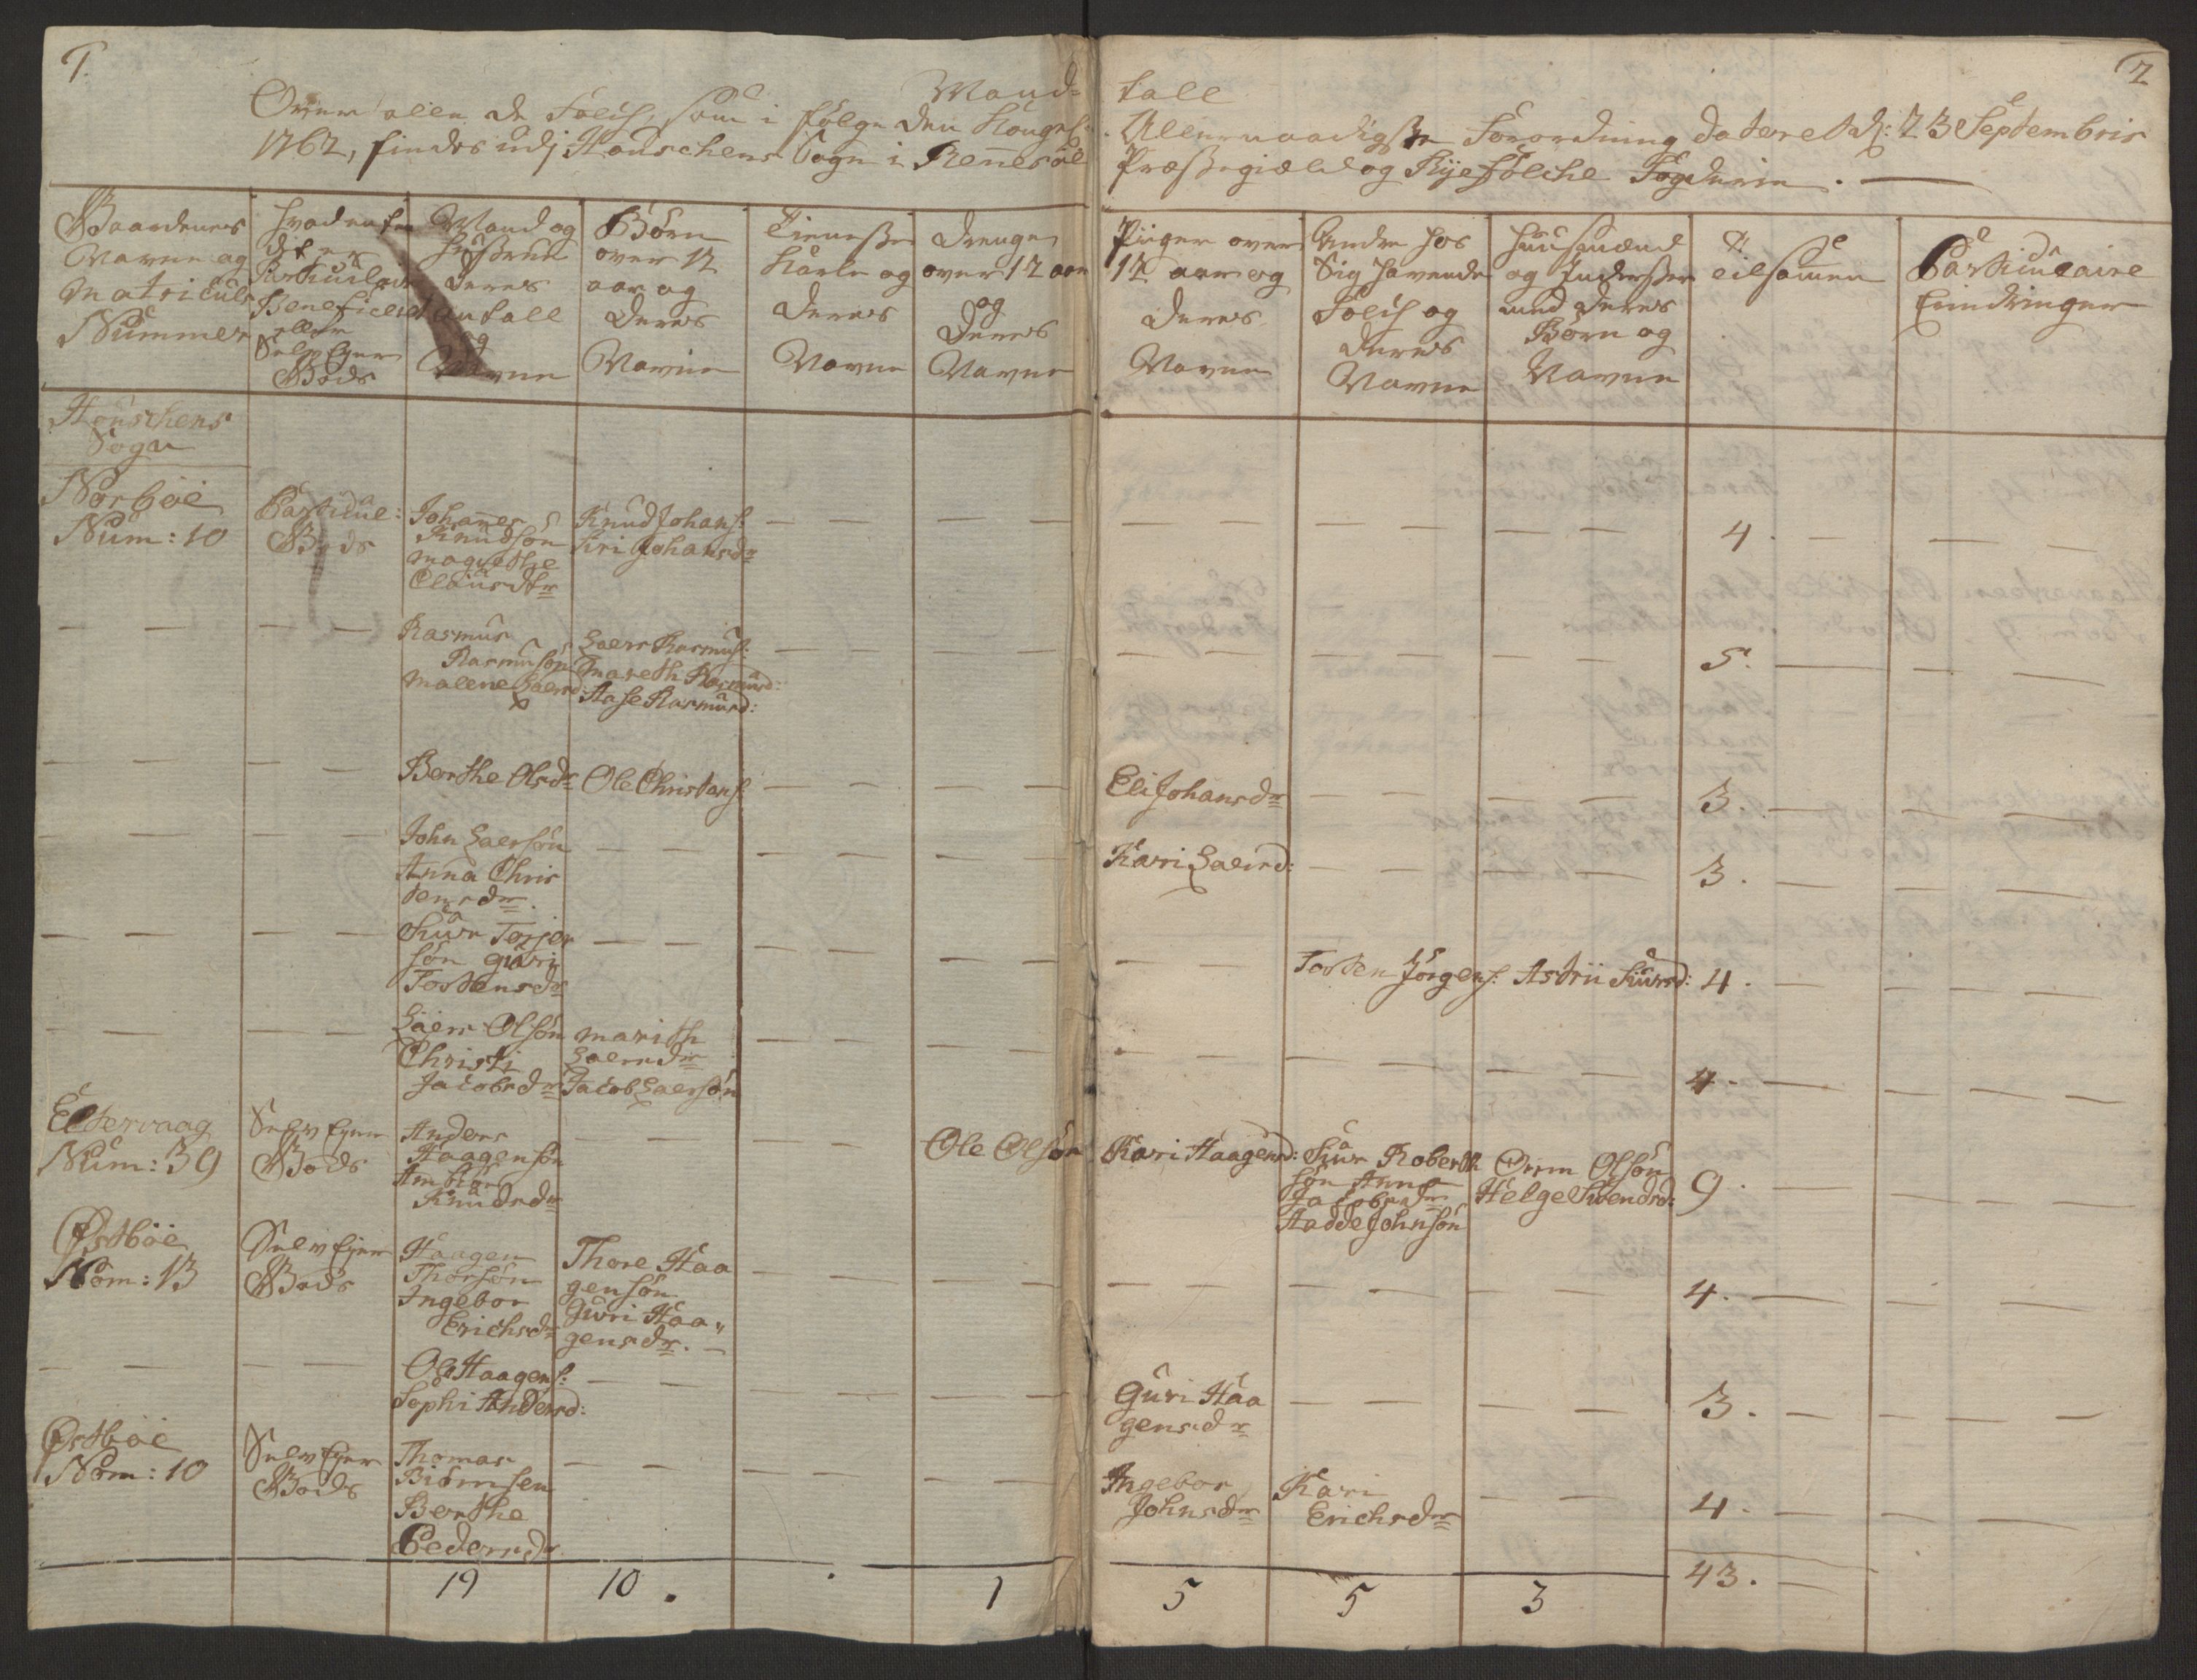 1.
2
Mand-
tall
Over alle de Folch, som i følge den Kongel:
Allernaadigste Forordning dateret d: 23 Septembris
1762, findes udj Houschens Sogn i Rennesöe
Præstegiæld og Ryefölche Fogderie.
Gaardenes
Navne og
Matriculs
Nummer
hvad enten
det er
Particulair
Beneficeret
eller
Selv Ejer
Gods
Mand og
Hustrue
deres
Antall
og
Navne
Börn
over 12
aar og
deres
Navne
Tieneste
Karle og
deres
Navne
Drenge
over 12 aar
og
deres
Navne
Piiger over
12 aar og
deres
Navne
Andre hos
Sig havende
Folch og
deres
Navne
Huusmænd
og Inderster
med deres
Börn og
Navne
Tilsamen
Particulaire
Erindringer
Houschens
Sogn
Norböe
Num: 10
Particul:
Gods
Johannes
Knudsön
Magrethe
Clausdtr
Knud Johans:
Siri Johansdr
4.
Rasmus
Rasmusön
Malene Saersd:
Saers Rasmus:
Mareth Rasmusd:
Aase Rasmusd:
5.
Berthe Olsdr
Ole Christens:
Eli Johansdr
3.
John Saersön
Anna Chris
tensdr.
Kari Saersd:
3.
Siur Torjer
sön Guri
Tostensdr
Tosten Jörgens:
Astrii Siursd:
4.
Saers Olsön
Christi
Jacobsdr
Marith
Saersdr
Jacob Saersön
4.
Eltervaag
Num: 39
Selv Ejer
Gods
Anders
Haagensön
Ambiör
Knudsdr
Ole Olsön
Kari Haagensd:
Siur Roberth
sön Anne
Jacobsdr
Aadde Johnsön
Orm Olsön
Helge Svendsd:
9.
Östböe
Nom: 13
Selv Ejer
Gods
Haagen
Thorsön
Ingebor
Erichsdr
Thore Haa
gensön
Guri Haa„
gensdr.
4.
Ole Haagens:
Sophi Andersd:
Guri Haa
gensdr
3.
Östböe
Nom: 10
Selv Ejer
Gods
Thomas
Biörnsen
Berthe
Pedersdr
Ingebor
Johnsdr
Kari
Erichsdr
4.
19
10.
1
5
5
3
43.